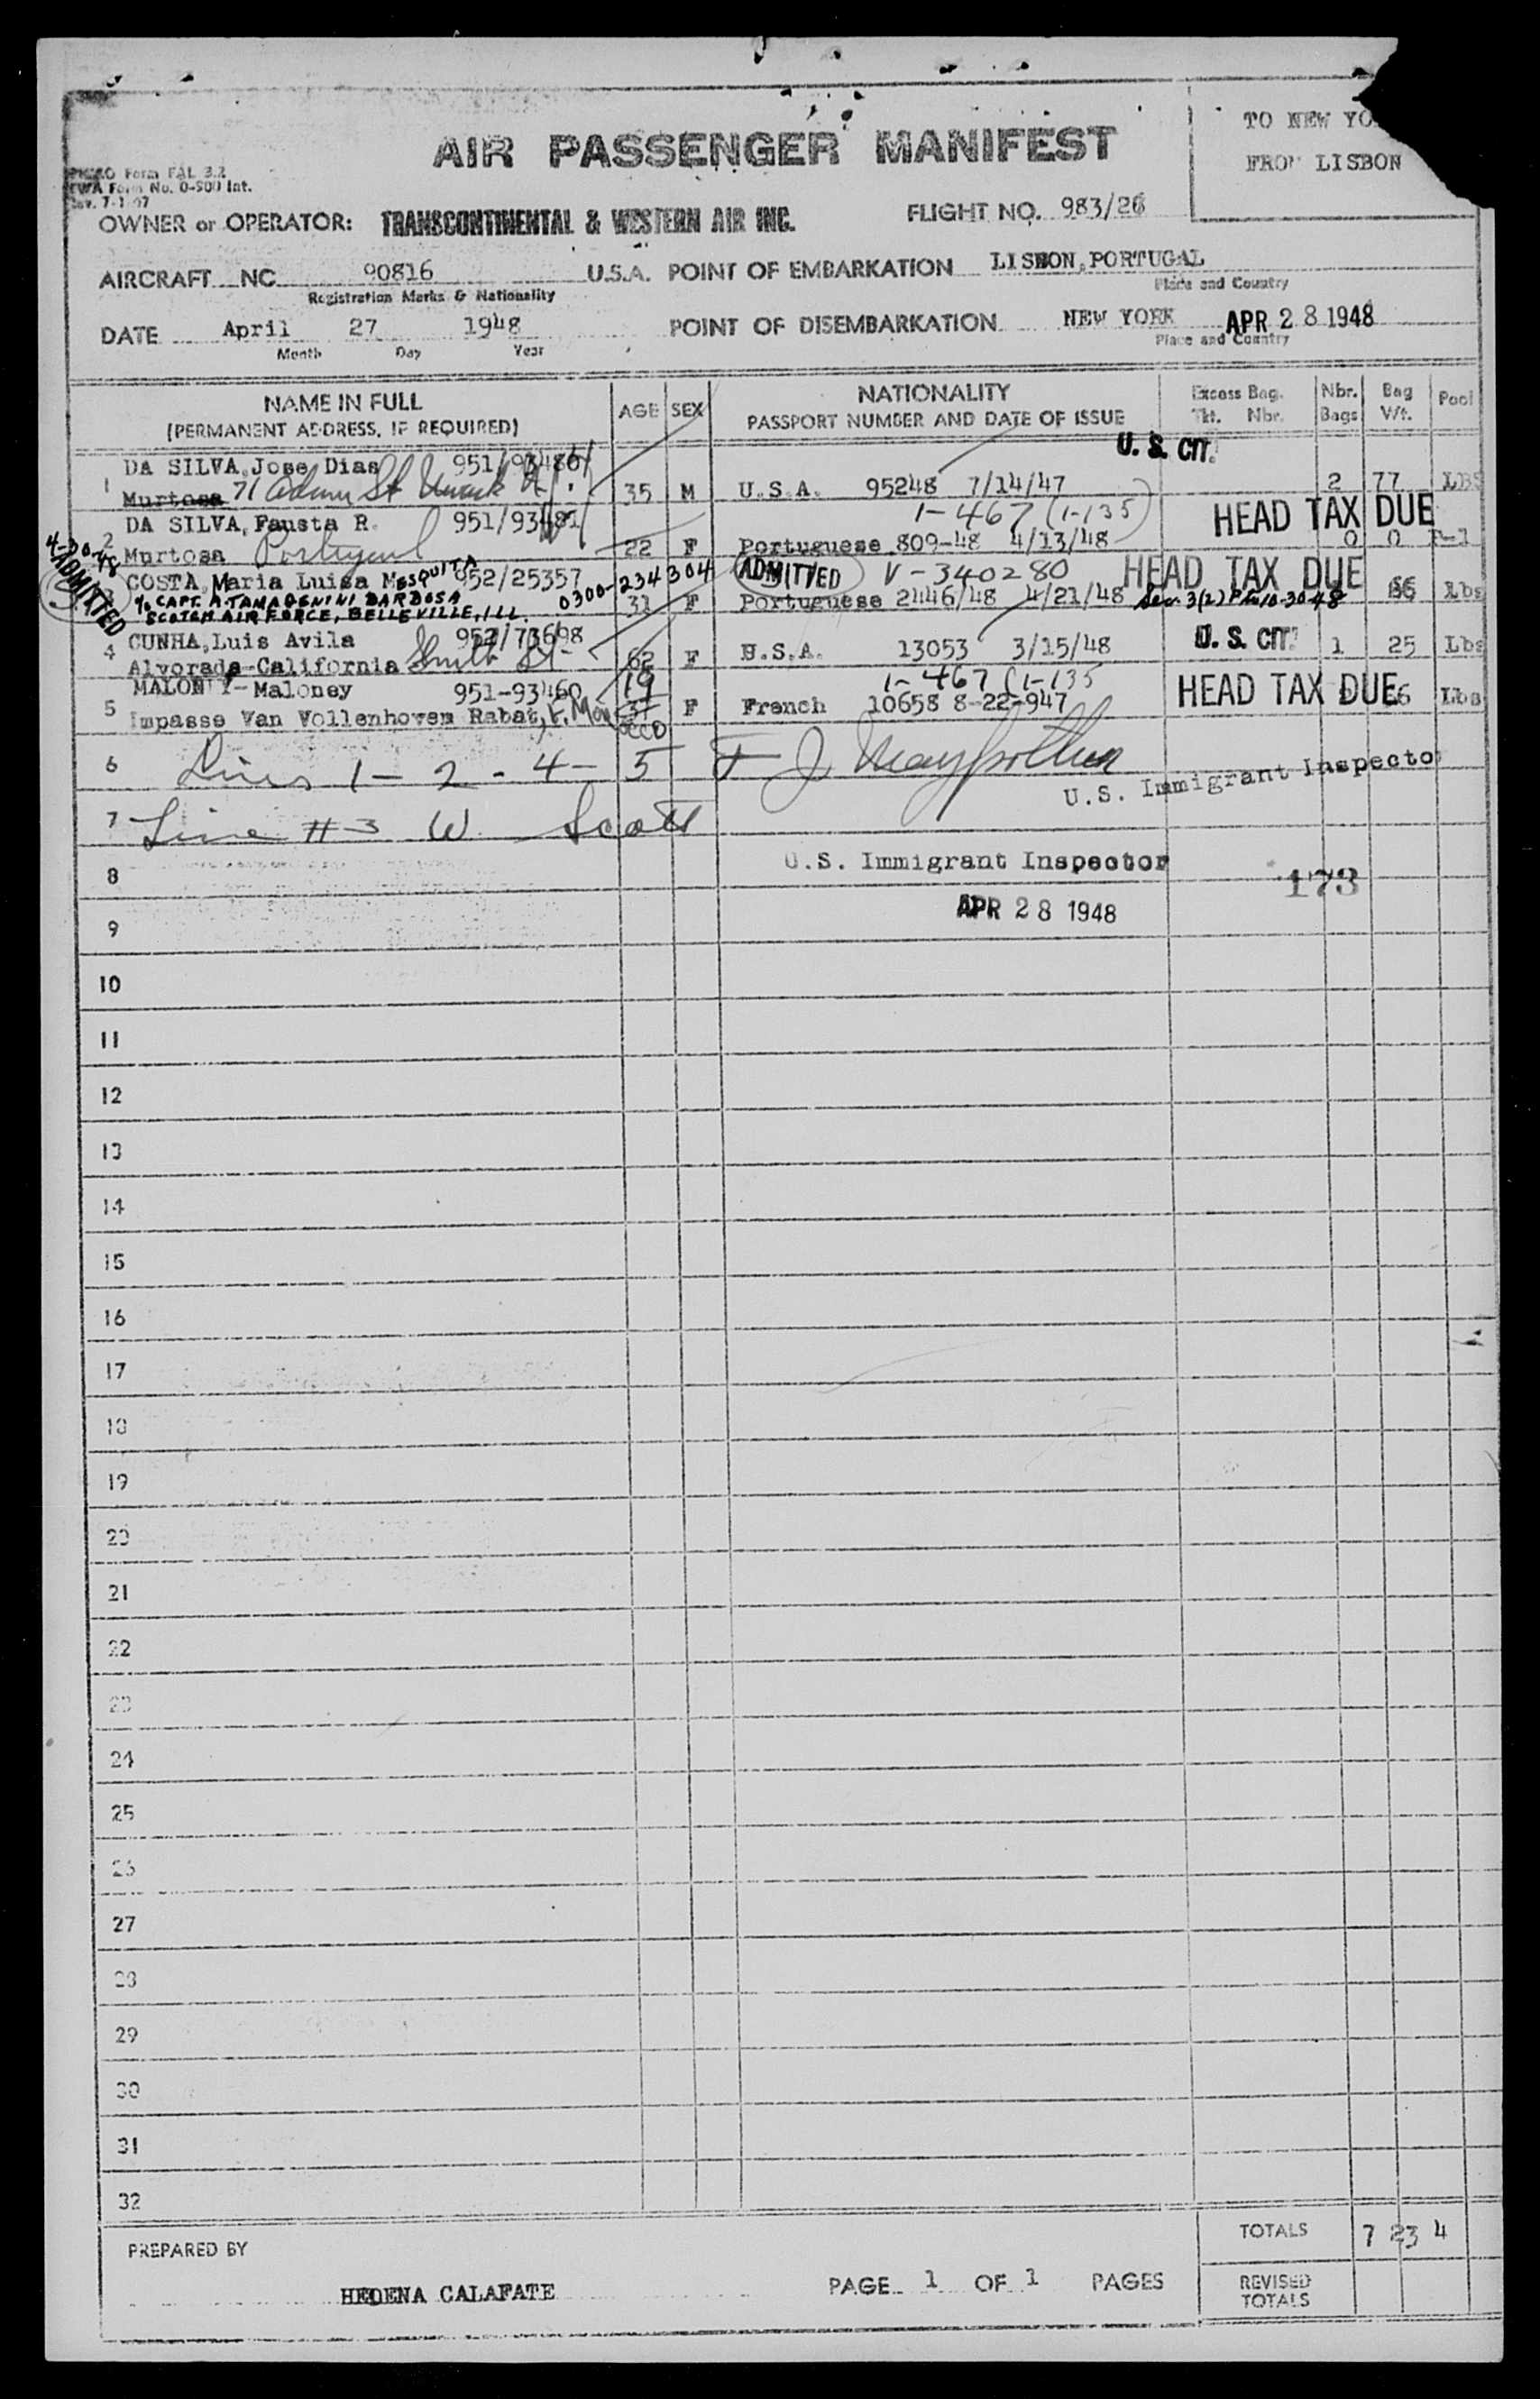 TO NEW YO
FROM LISBON
AIR PASSENGER MANIFEST
Form FAL 3.2
TWA Form No. O-500 Int.
OWNER or OPERATOR: TRANSCONTINENTAL & WESTERN AIR INC. FLIGHT NO. 983/26
AIRCRAFT NC 90816 U.S.A. POINT OF EMBARKATION LISBON, PORTUGAL
Registration Marks & Nationality Place and Country
DATE April 27 1948 POINT OF DISEMBARKATION NEW YORK APR 28 1948
Month Day Year Place and Country
NAME IN FULL AGE SEX NATIONALITY Excess Bag. Nbr. Bag Pool
(PERMANENT ADDRESS, IF REQUIRED) PASSPORT NUMBER AND DATE OF ISSUE Tkt. Nbr. Bags Wt.
U. S. CIT.
DA SILVA, Jose Dias
1 Murtosa 71 St 35 M U.S.A. 95248 7/14/47 2 77 LBS
1-467 (1-135) HEAD TAX DUE
DA SILVA, Fausta R. 951/93481
2 Murtosa Portugal 22 F Portuguese 809-48 4/13/48 0 0
4-30-48 ADMITTED
COSTA, Maria Luisa MESQUITA 952/25357 0300-234304 ADMITTED V-340280 HEAD TAX DUE
3 31 F Portuguese 2446/48 4/21/48 Sec. 3(2) 10-30-48 Lbs
% CAPT. A. TAMAGENINI BARBOSA
SCOTCH AIR FORCE, BELLEVILLE, ILL.
CUNHA, Luis Avila U. S. CIT.
4 Alvorada-California 62 F U.S.A. 13053 3/15/48 1 25 Lbs
1-467 (1-135
MALONEY- Maloney 951-93460 19 HEAD TAX DUE
5 Impasse Van Vollenhoven Rabat, F. Morocco F French 10658 8-22-947 Lbs
6 Lines 1-2-4-5
U.S. Immigrant Inspector
7 Line #3 W Scott
8 U.S. Immigrant Inspector 173
9 APR 28 1948
10
11
12
13
14
15
16
17
18
19
20
21
22
23
24
25
26
27
28
29
30
31
32
PREPARED BY TOTALS 7 234
HEDENA CALAFATE PAGE 1 OF 1 PAGES REVISED
TOTALS